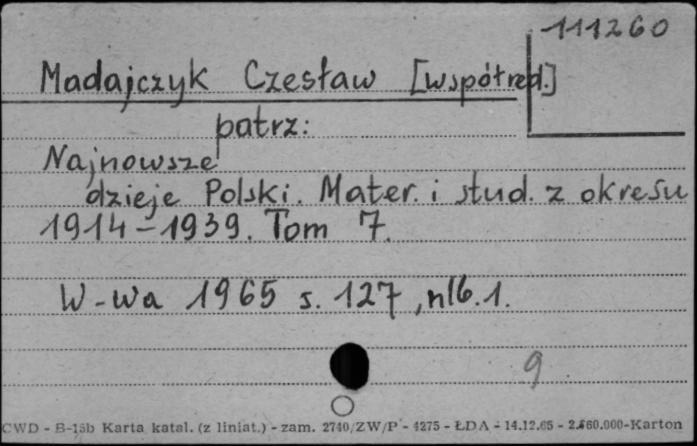 111260
Madajczyk Czesław [współred.]
patrz:
Najnowsze
dzieje Polski. Mater. i stud. z okresu
1914-1939. Tom 7.
W-wa 1965 s. 127, nlb. 1.
9
CWD - B-15b Karta katal. (z liniat.) - zam. 2740/ZW/P - 4275 - ŁDA - 14.12.65 - 2.560.000-Karton